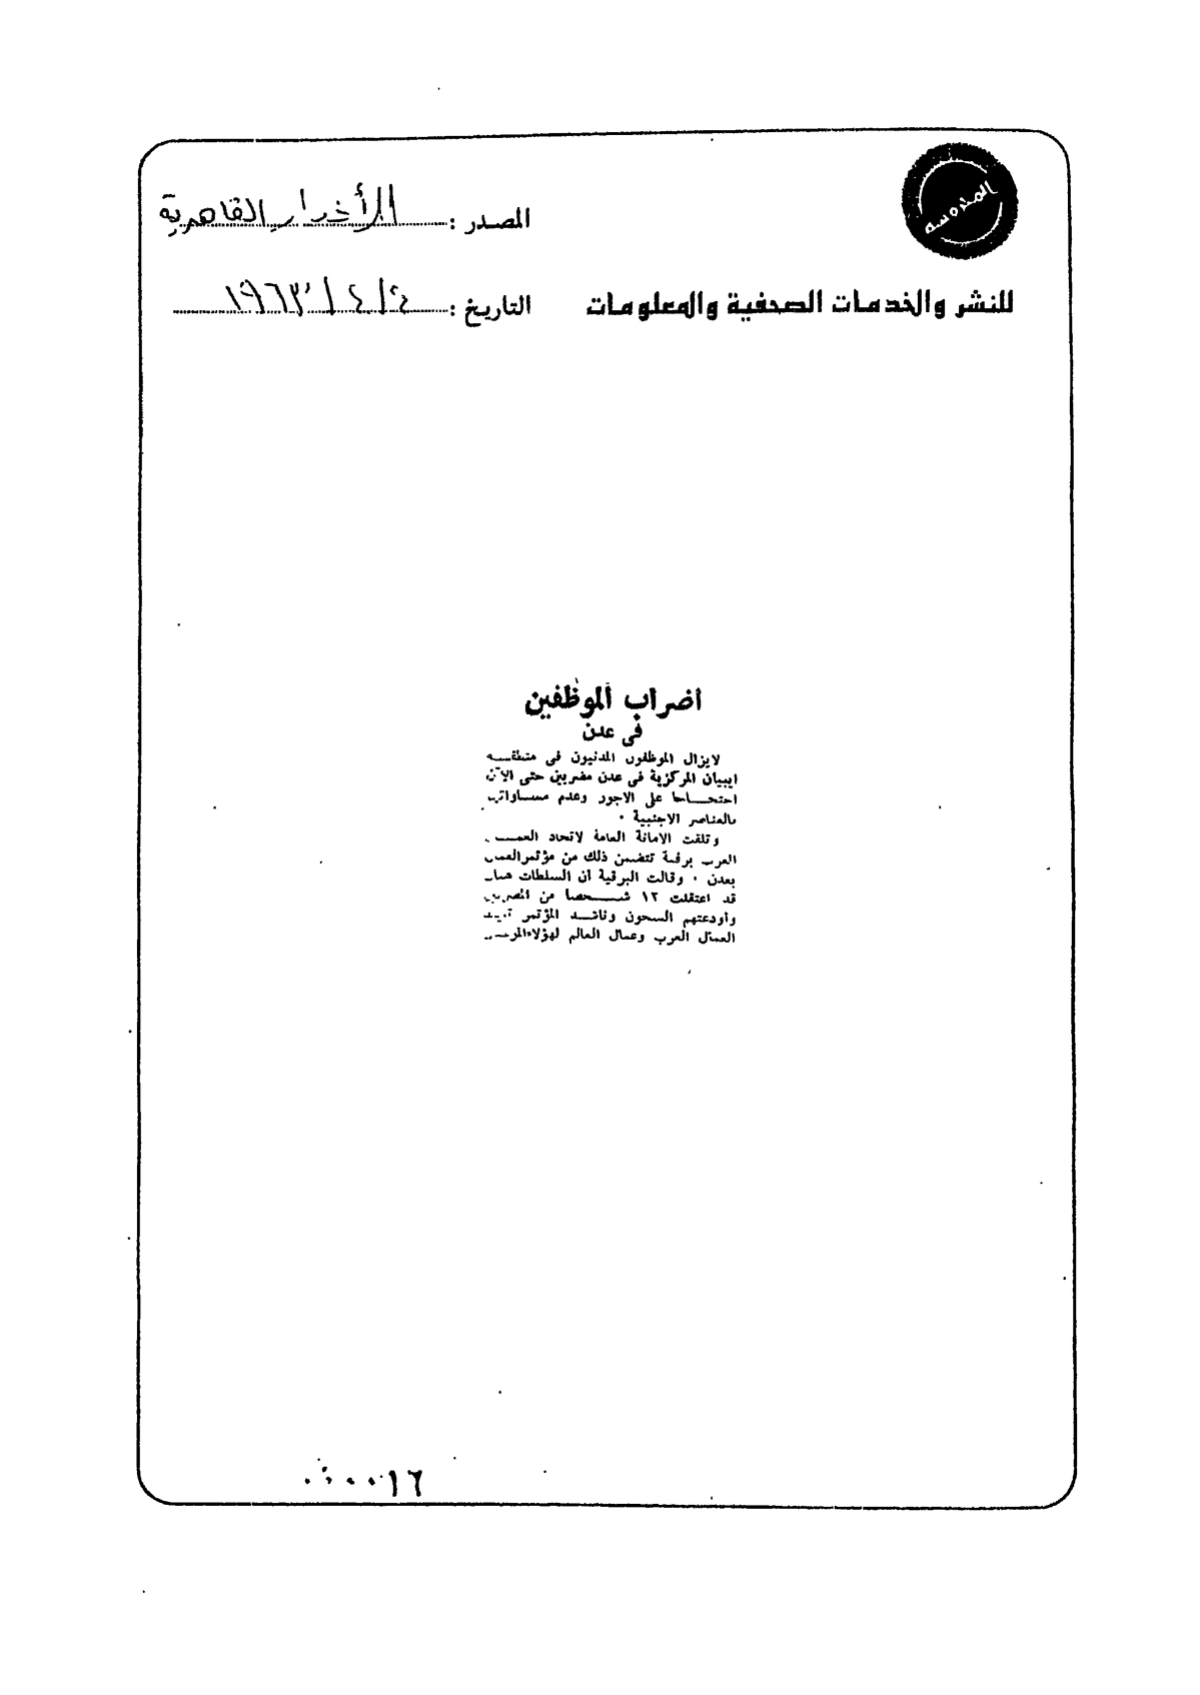 المدروسه
المصدر : الأخبار القاهرية
للنشر والخدمات الصحفية والمعلومات
التاريخ : ٤ / ٤ / ١٩٦٣
اضراب الموظفين
فى عدن
لايزال الموظفون المدنيون فى منطقـــة
ايبيان المركزية فى عدن مضربين حتى الآن
احتجـــاجا على الاجور وعدم مســـاواتهم
بالعناصر الاجنبية .
وتلقت الامانة العامة لاتحاد العمـــال
العرب برقية تتضمن ذلك من مؤتمر العمال
بعدن . وقالت البرقية ان السلطات هناك
قد اعتقلت ١٢ شـــخصا من المضربين
وأودعتهم السجون وناشـــد المؤتمر تأييد
العمال العرب وعمال العالم لهؤلاء
٠٠٠٠١٦